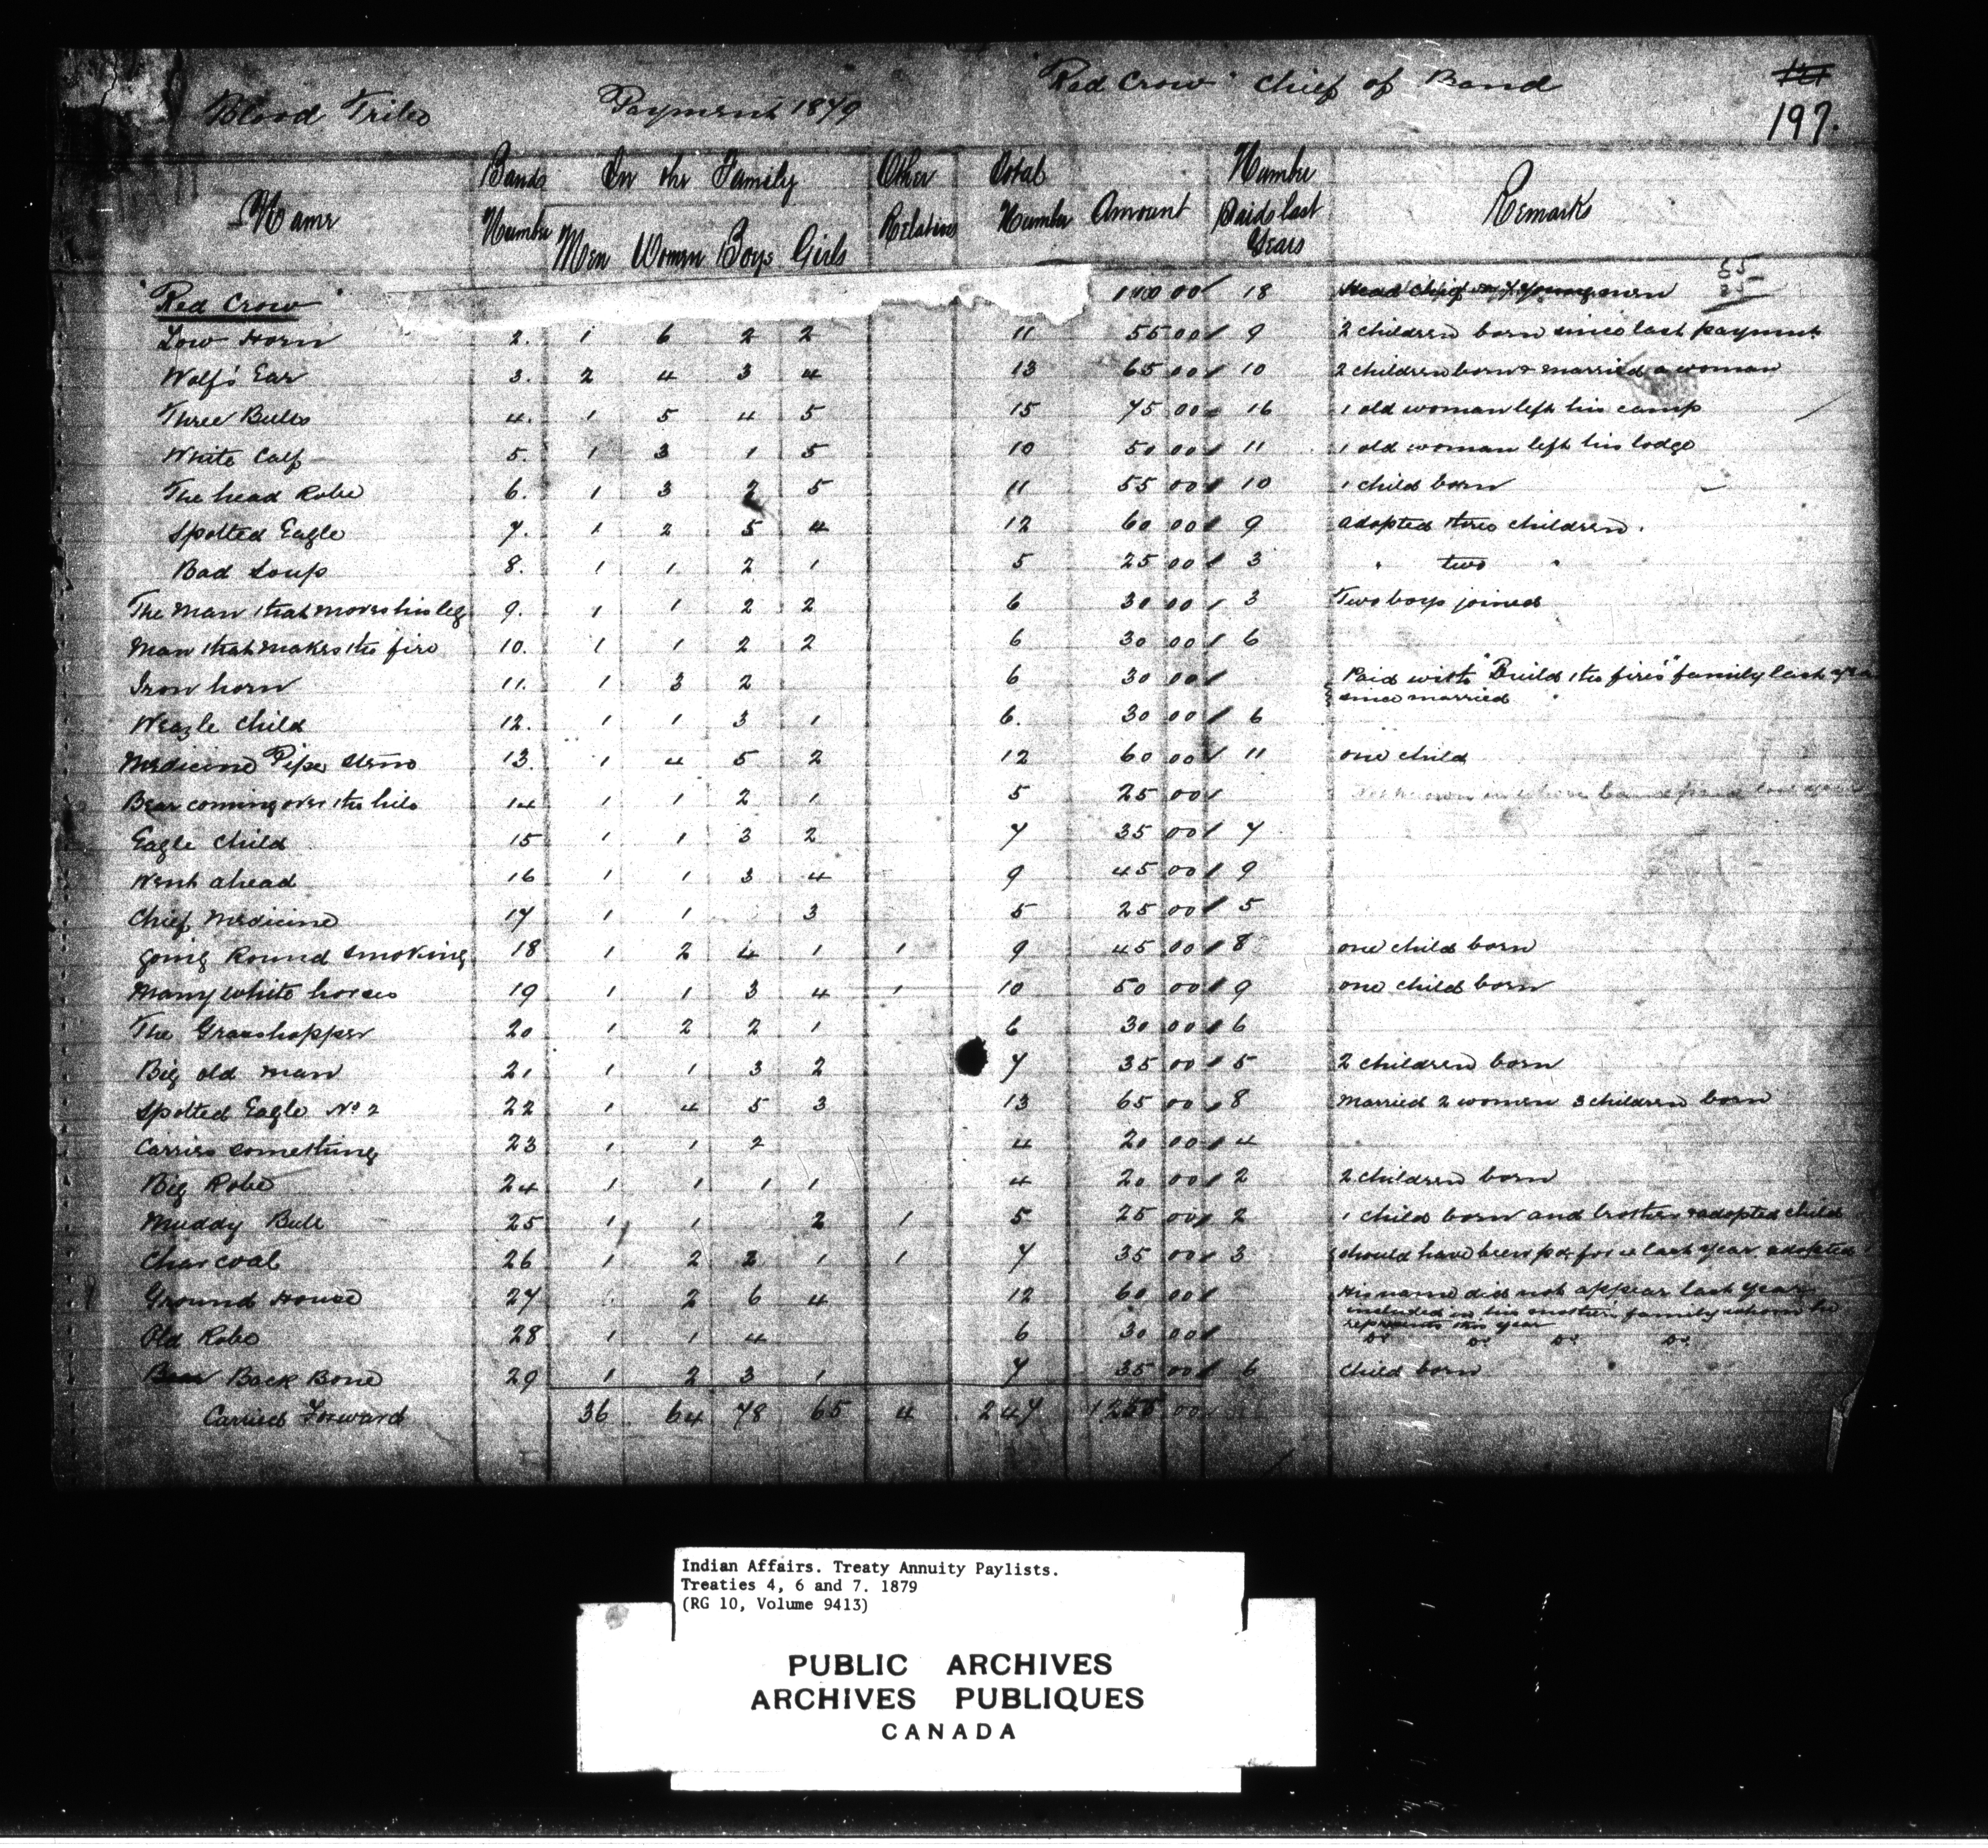 Blood Tribe Payment 1879 "Red Crow" Chief of Band
197.
Name Bands Number In the Family Men Women Boys Girls Other Relatives Total Number Amount Number Paid last Years Remarks
"Red Crow" 18 men 55
Low Horn 2. 1 6 2 2 11 55 00 9 2 children born since last payment
Wolf's Ear 3. 2 4 3 4 13 65 00 10 2 children born & married a woman
Three Bulls 4. 1 5 4 5 15 75 00 16 1 old woman left his camp
White Calf 5. 1 3 1 5 10 50 00 11 1 old woman left his lodge
The head Robe 6. 1 3 2 5 11 55 00 10 1 child born
Spotted Eagle 7. 1 2 5 4 12 60 00 9 adopted three children.
Bad Soup 8. 1 1 2 1 5 25 00 3 " two "
The Man that moves his leg 9. 1 1 2 2 6 30 00 3 Two boys joined
Man that makes the fire 10. 1 1 2 2 6 30 00 6
Iron horn 11. 1 3 2 6 30 00 Paid with "Build the fire's" family last year
since married
Weazle Child 12. 1 1 3 1 6. 30 00 6
Medicine Pipe Stem 13. 1 4 5 2 12 60 00 11 one child
Bear coming over the hill 14 1 1 2 1 5 25 00
Eagle Child 15 1 1 3 2 7 35 00 7
Went ahead 16 1 1 3 4 9 45 00 9
Chief Medicine 17 1 1 3 5 25 00 5
going Round Smoking 18 1 2 4 1 1 9 45 00 8 one child born
Many white horses 19 1 1 3 4 1 10 50 00 9 one child born
The Grasshopper 20 1 2 2 1 6 30 00 6
Big old man 21 1 1 3 2 7 35 00 5 2 children born
Spotted Eagle No 2 22 1 4 5 3 13 65 00 8 Married 2 women 3 children born
Carries something 23 1 1 2 4 20 00 4
Big Robe 24 1 1 1 1 4 20 00 2 2 children born
Muddy Bull 25 1 1 2 1 5 25 00 2 1 child born and brother & adopted child
Charcoal 26 1 2 2 1 1 7 35 00 3 should have been pd for last year adopted
Ground House 27 2 6 4 12 60 00 His name did not appear last year
included in his mother's family whom he
represents this year
Old Robe 28 1 1 4 6 30 00 Do. Do. Do. Do.
Back Bone 29 1 2 3 1 7 35 00 6 child born
Carried Forward 36 64 78 65 4 247 1255 00
Indian Affairs. Treaty Annuity Paylists.
Treaties 4, 6 and 7. 1879
(RG 10, Volume 9413)
PUBLIC ARCHIVES
ARCHIVES PUBLIQUES
CANADA